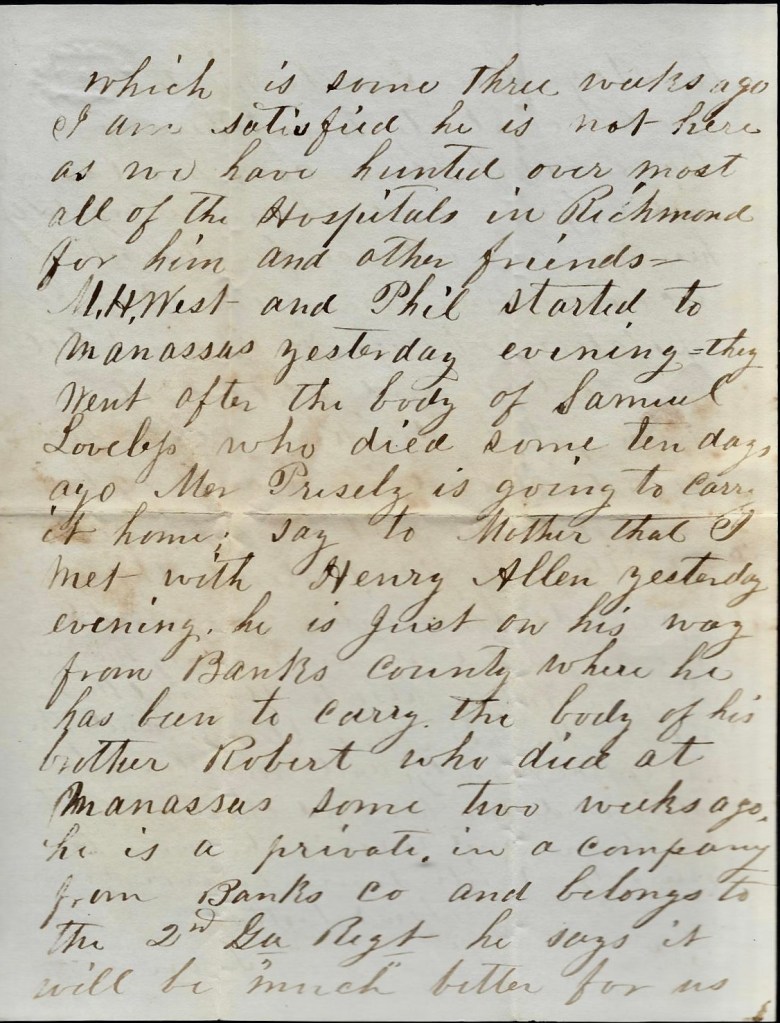 which is some three weeks ago
I am satisfied he is not here
as we have hunted over most
all of the Hospitals in Richmond
for him and other friends=
M.H. West and Phil started to
Manassas yesterday evening =they
Went after the body of Samuel
Loveless who died some ten days
ago is going to carry
it home; say to Mother that I
Met with Henry Allen yesterday
evening. he is Just on his way
from Banks County where he
has been to carry the body of his
brother Robert who died at
Manassas some two weeks ago.
he is a private. in a company
from Banks Co and belongs to
the 2nd Ga Regt he says it
will be "much" better for us